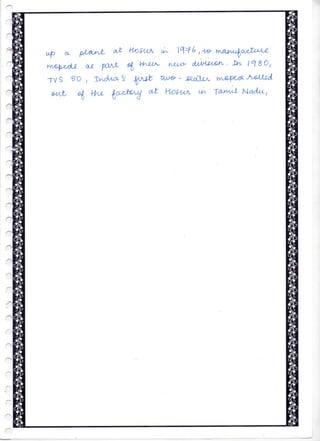 up a plant at Hosur in 1976, to manufacture
mopeds as part of their new division. In 1980,
TVS 50, India's first two-seater moped rolled
out of the factory at Hosur in Tamil Nadu,